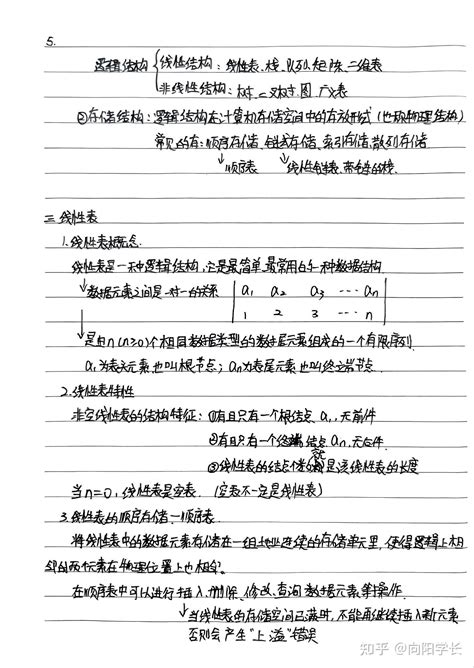 5.
逻辑结构 { 线性结构：线性表、栈、队列、矩阵、二维表
非线性结构：树、二叉树、图、广义表
②存储结构：逻辑结构在计算机存储空间中的存放形式（也称物理结构）
常见的有：顺序存储、链式存储、索引存储、散列存储
↓顺序表 ↘线性链表、带链的栈
二 线性表
1.线性表概念
线性表是一种逻辑结构，它是最简单、最常用的一种数据结构
↓数据元素之间是一对一的关系 | a₁ a₂ a₃ ··· aₙ |
| 1 2 3 ··· n |
↓是由n(n≥0)个相同数据类型的数据元素组成的一个有限序列
a₁为表头元素也叫根节点；aₙ为表尾元素也叫终端节点
2.线性表特性
非空线性表的结构特征：①有且只有一个根结点 a₁，无前件
②有且只有一个终端结点 aₙ，无后件
③线性表的结点个数n是该线性表的长度
当n=0，线性表是空表 （空表不一定是线性表）
3.线性表的顺序存储—顺序表
将线性表中的数据元素存储在一组地址连续的存储单元里，使得逻辑上相
邻的两个元素在物理位置上也相邻。
在顺序表中可以进行插入、删除、修改、查询数据元素等操作.
↘当线性表的存储空间已满时，不能再继续插入新元素
否则会产生“上溢”错误
知乎 @向阳学长